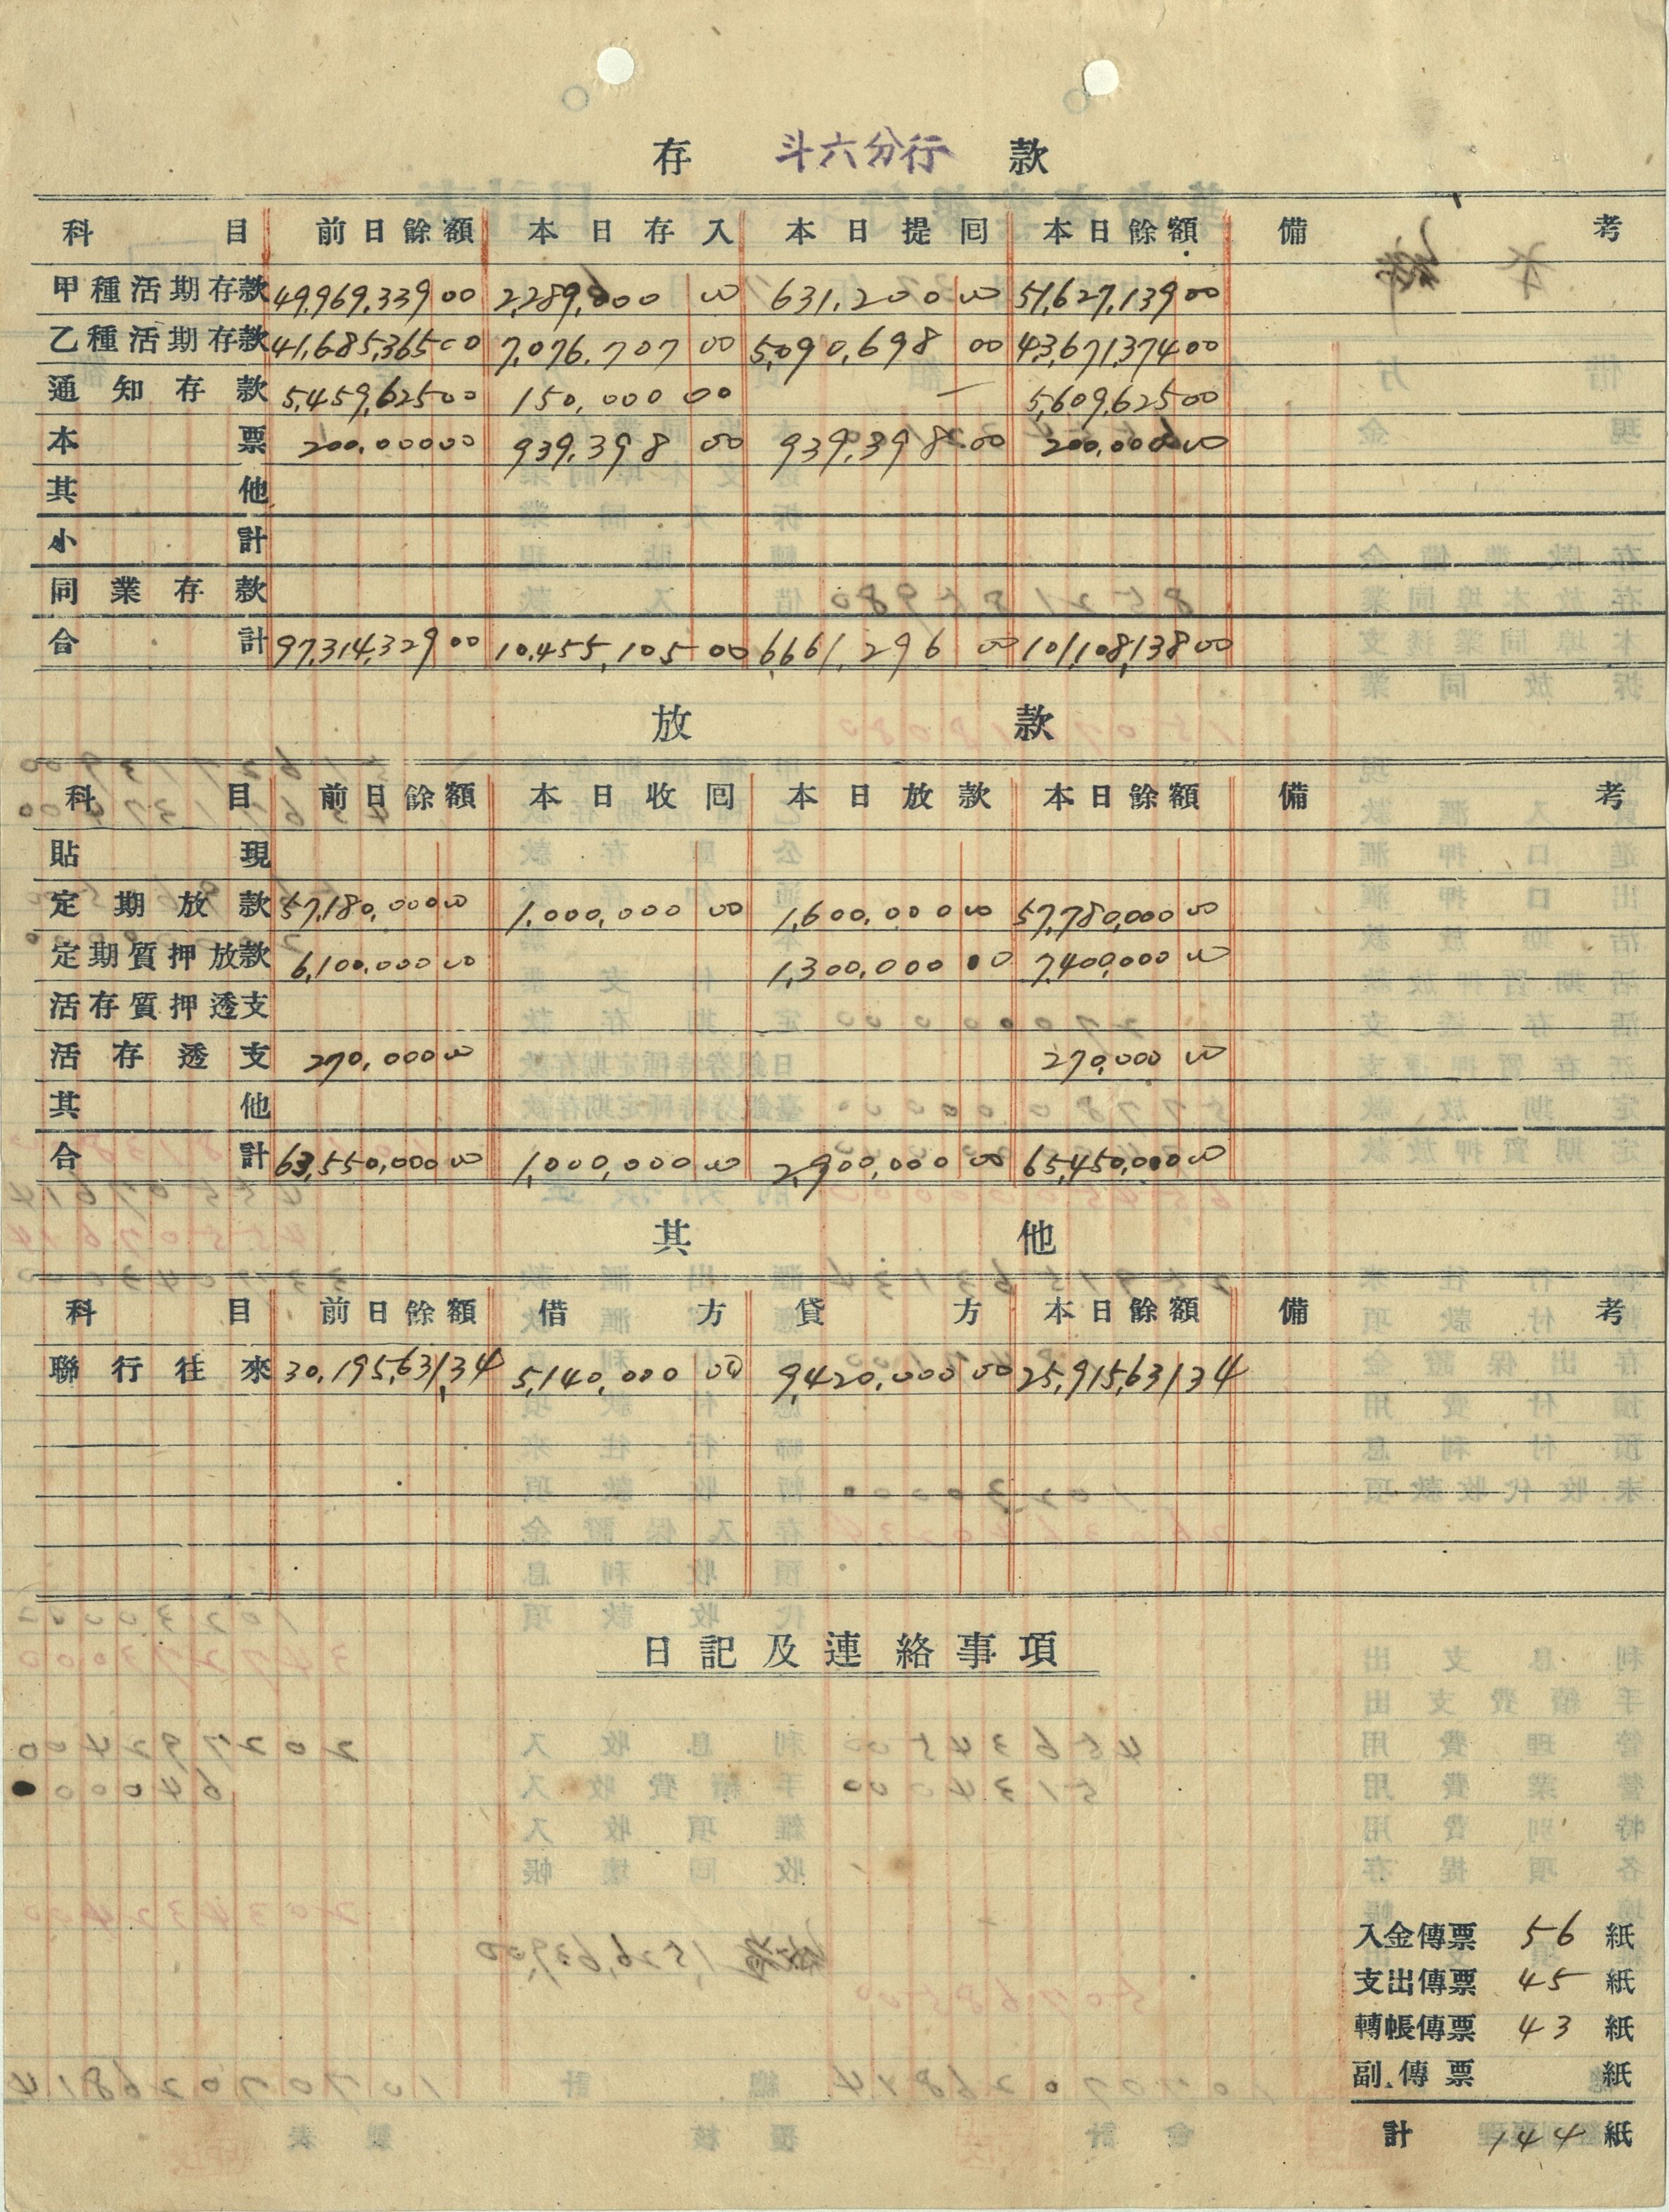 存 斗六分行 款
科目 前日餘額 本日存入 本日提囘 本日餘額 備考
甲種活期存款 49,969,339 00 2,289,000 00 631,200 00 51,627,139 00
乙種活期存款 41,685,365 00 7,076,707 00 5,090,698 00 43,671,374 00
通知存款 5,459,625 00 150,000 00 — 5,609,625 00
本票 200,000 00 939,398 00 939,398 00 200,000 00
其他
小計
同業存款
合計 97,314,329 00 10,455,105 00 6,661,296 00 101,108,138 00
放款
科目 前日餘額 本日收囘 本日放款 本日餘額 備考
貼現
定期放款 57,180,000 00 1,000,000 00 1,600,000 00 57,780,000 00
定期質押放款 6,100,000 00 1,300,000 00 7,400,000 00
活存質押透支
活存透支 270,000 00 270,000 00
其他
合計 63,550,000 00 1,000,000 00 2,900,000 00 65,450,000 00
其他
科目 前日餘額 借方 貸方 本日餘額 備考
聯行往來 30,195,631.34 5,140,000 00 9,420,000 00 25,915,631 34
日記及連絡事項
入金傳票 56 紙
支出傳票 45 紙
轉帳傳票 43 紙
副傳票 紙
計 144 紙